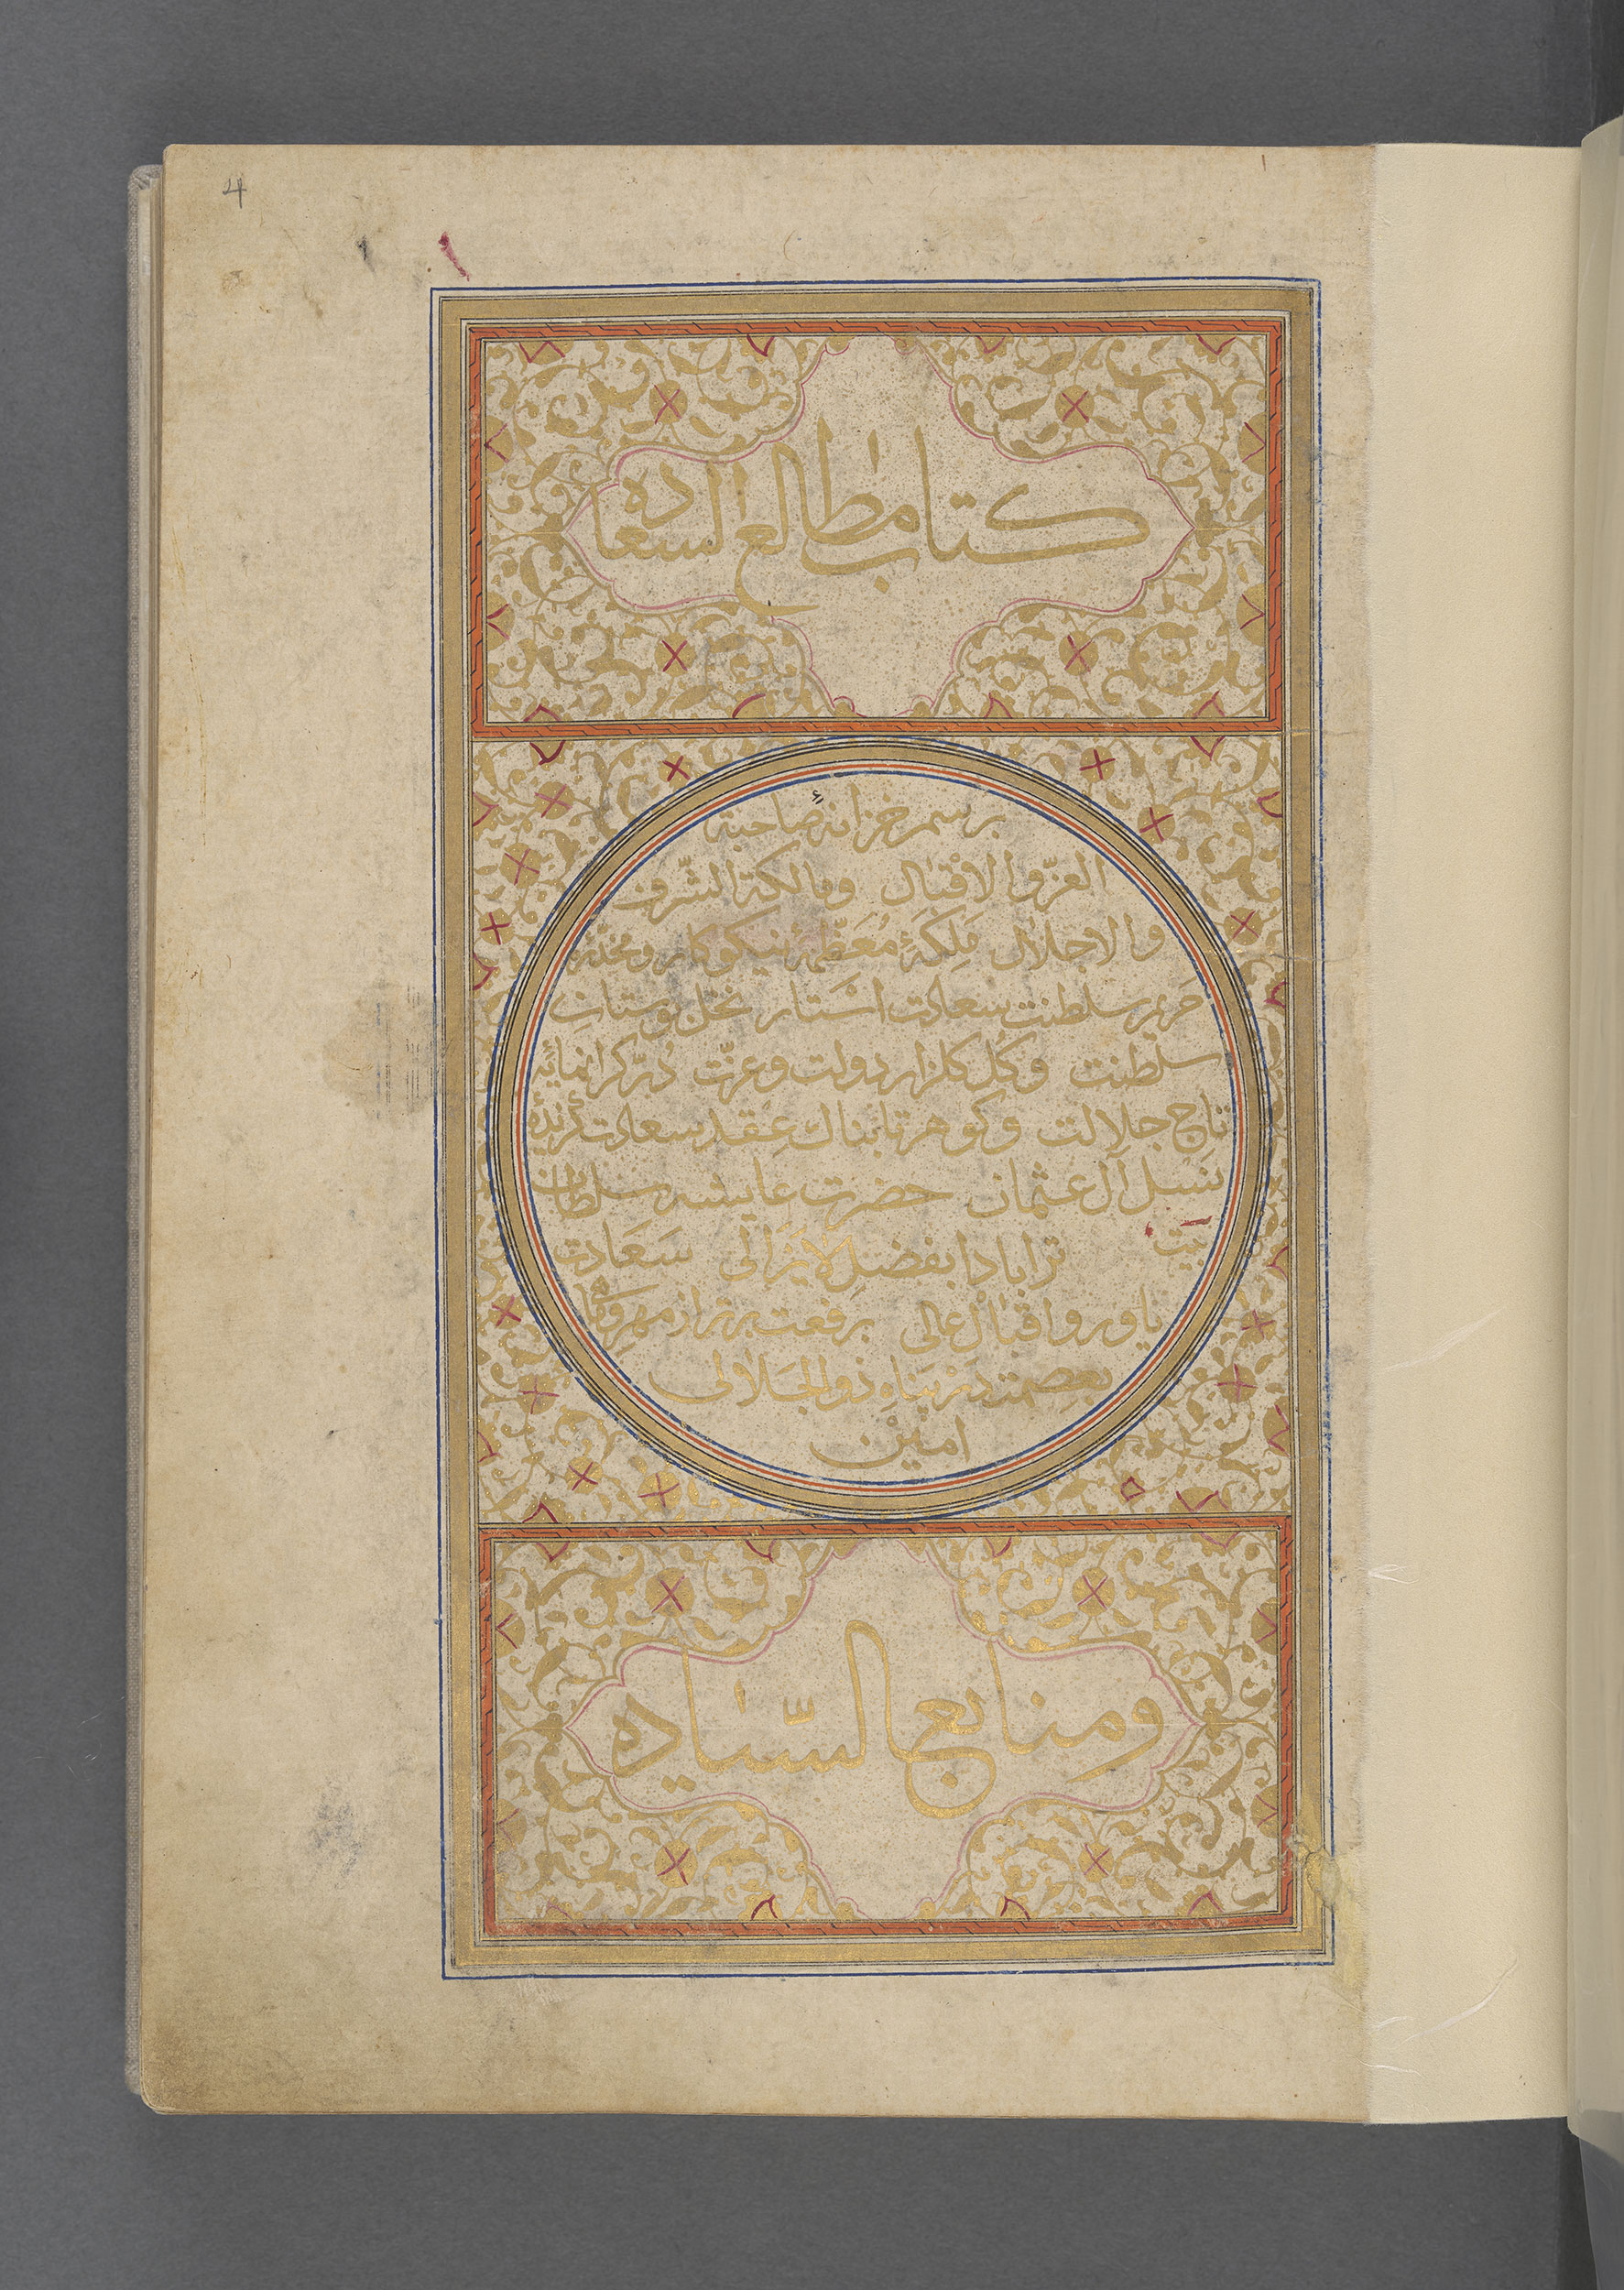 4
١
كتاب مطالع السعاده
برسم خزانهٔ صاحبة
العزّ والاقبال ومالكة الشّرف
والاجلال مَلِكَهٔ مُعَظّمهٔ نیکوکار و مخدّرهٔ
حَریم سلطنت سعادت اَستار نخل بوستانِ
سلطنت و کُل کلزار دولت و عزّت دُرّ کرانمایَهٔ
تاج جلالت و کوهر تابناك عِقد سعادت کزیدهٔ
نسل آل عثمان حضرت عایشه سلطان
بیت ترا بادا بفضلِ لایَزالی سَعَادت
یاور و اقبال عالی برفعت برتر از مهر و
بعصمت در پناهِ ذو الجلالی
امین
ومنابع السّیاده